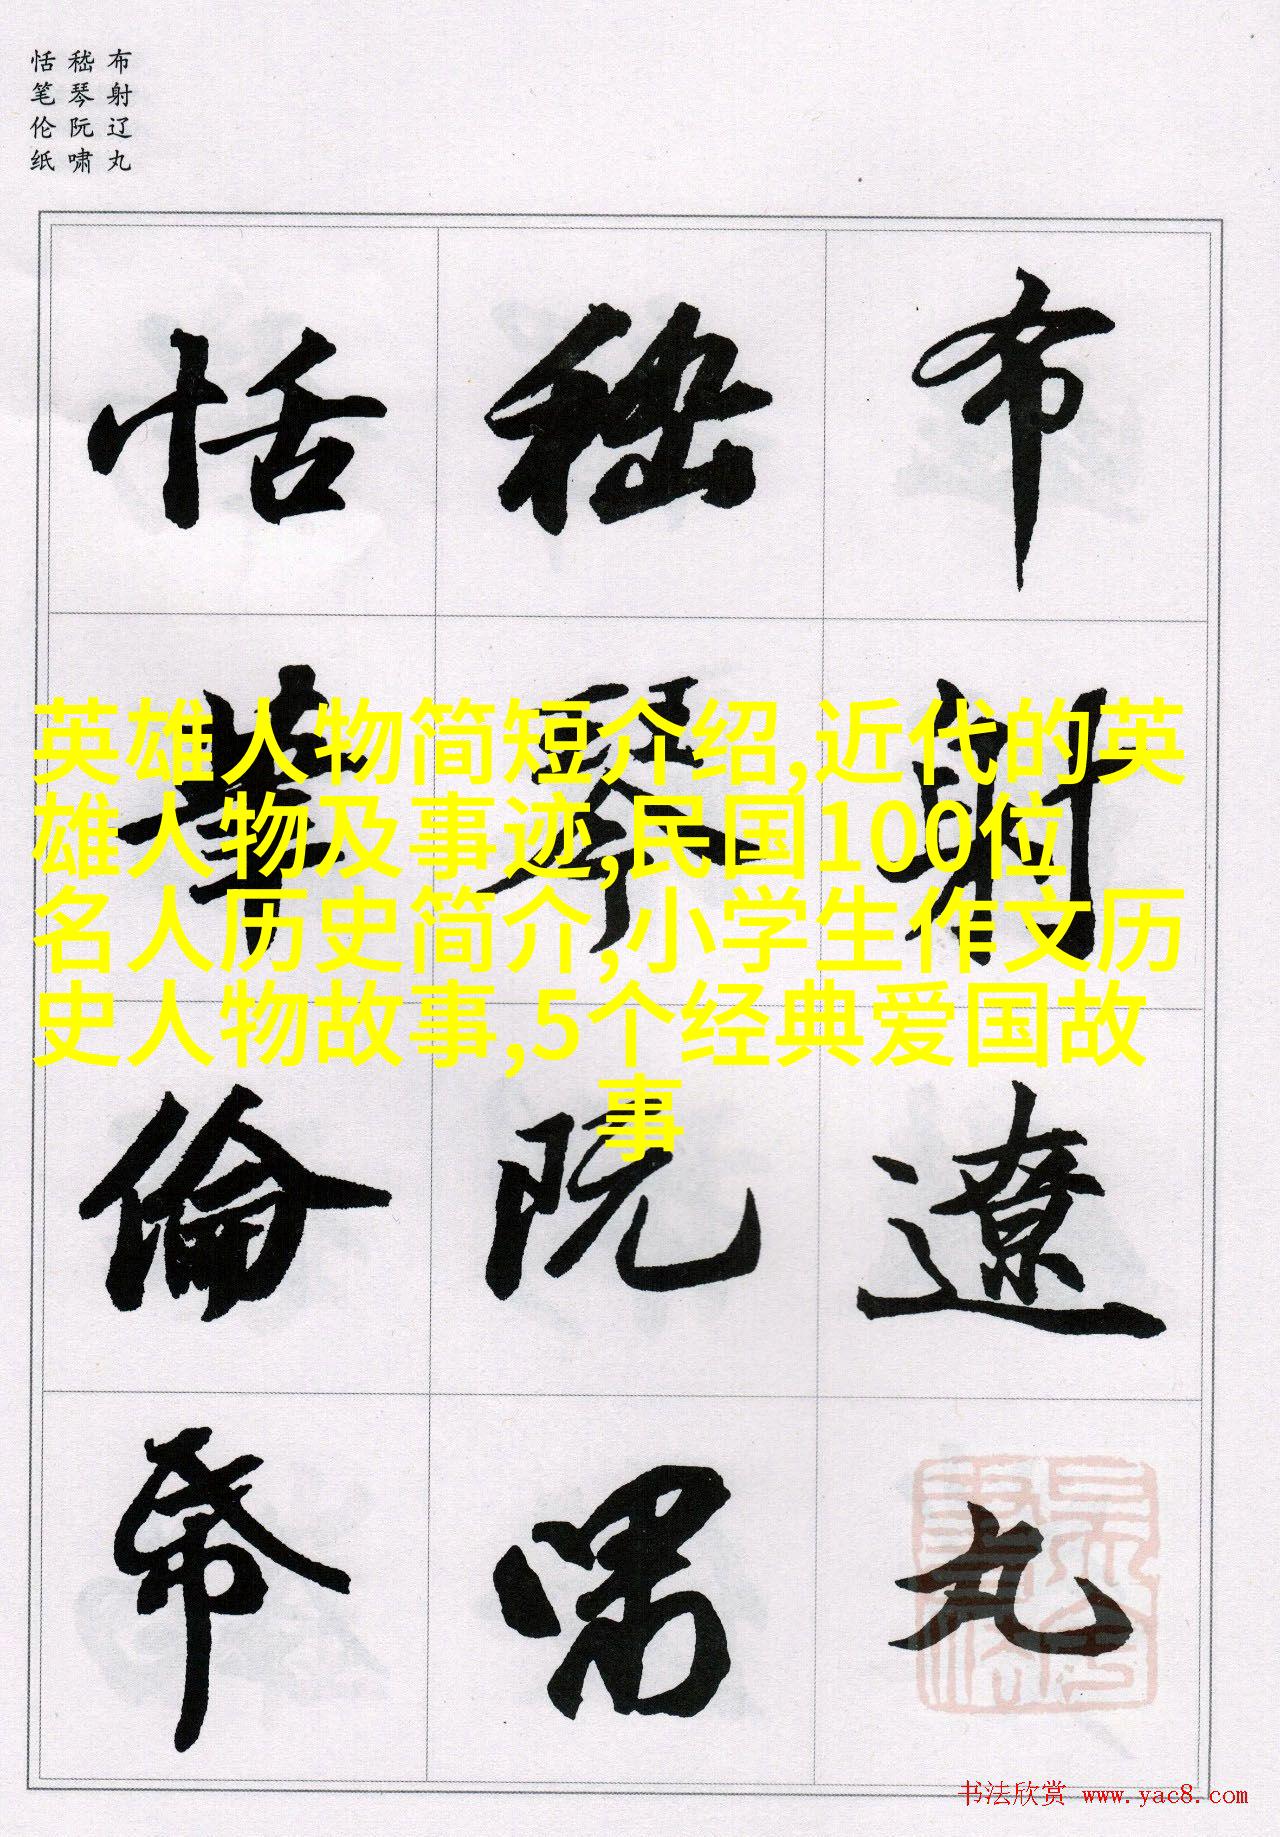 布射辽丸
嵇琴阮啸
恬笔伦纸
布射遼丸
嵇琴阮嘯
恬筆倫帋
英雄人物简短介绍,近代的英
雄人物及事迹,民国100位
名人历史简介,小学生作文历
史人物故事,5个经典爱国故
事
书法欣赏 www.yac8.com